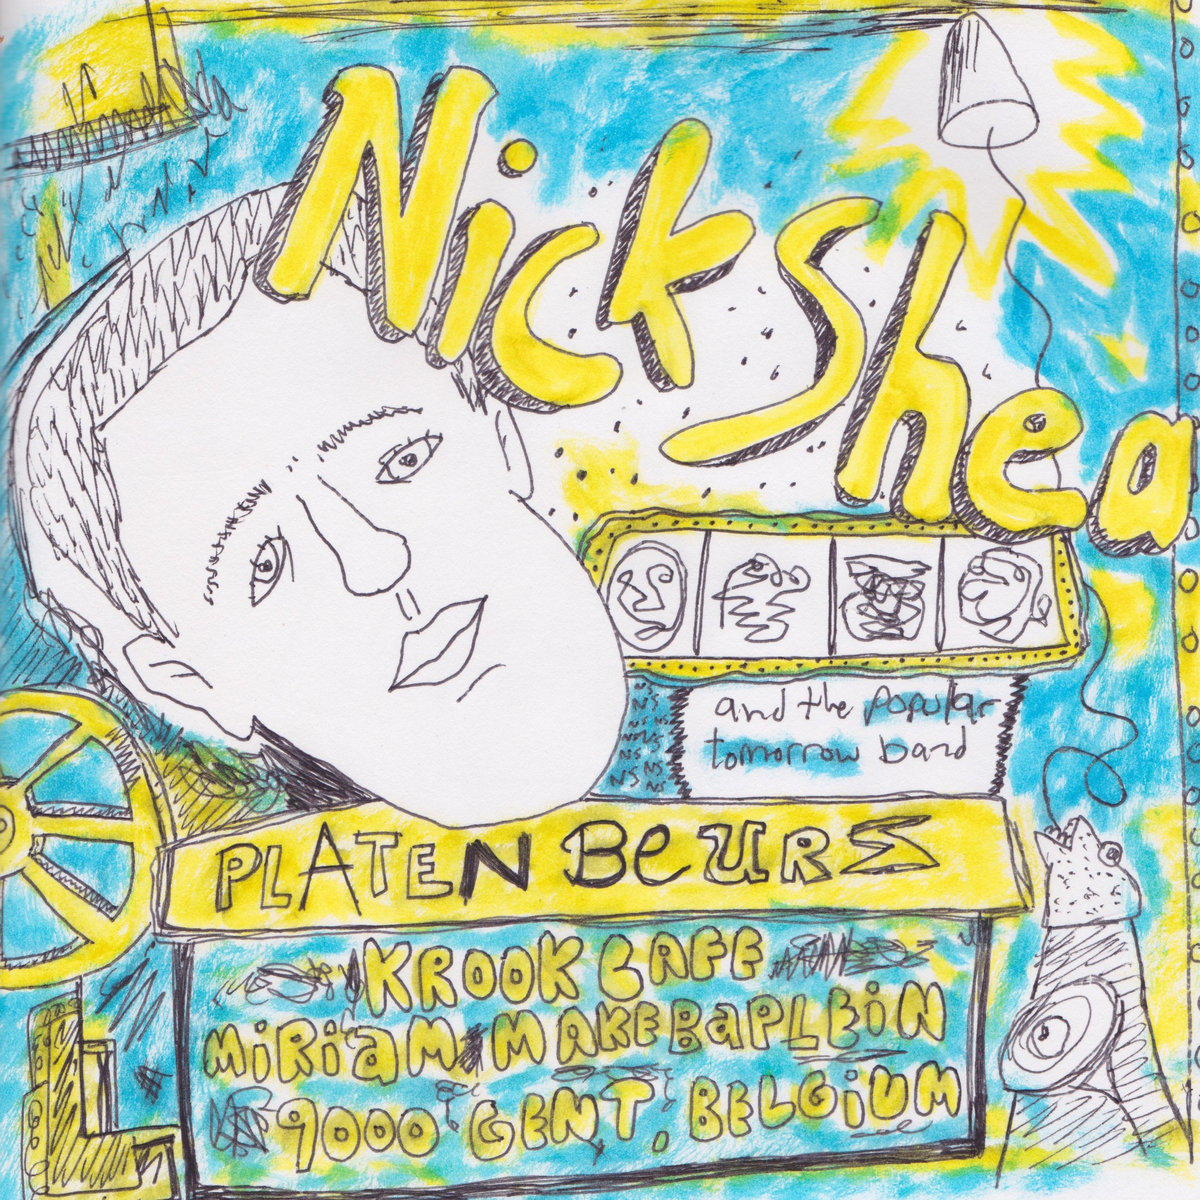 Nick Shea
and the popular
tomorrow band
PLATEN BEURS
KROOK CAFE
MiRiAM MAKEBAPLEiN
9000 GENT, BELGiUM